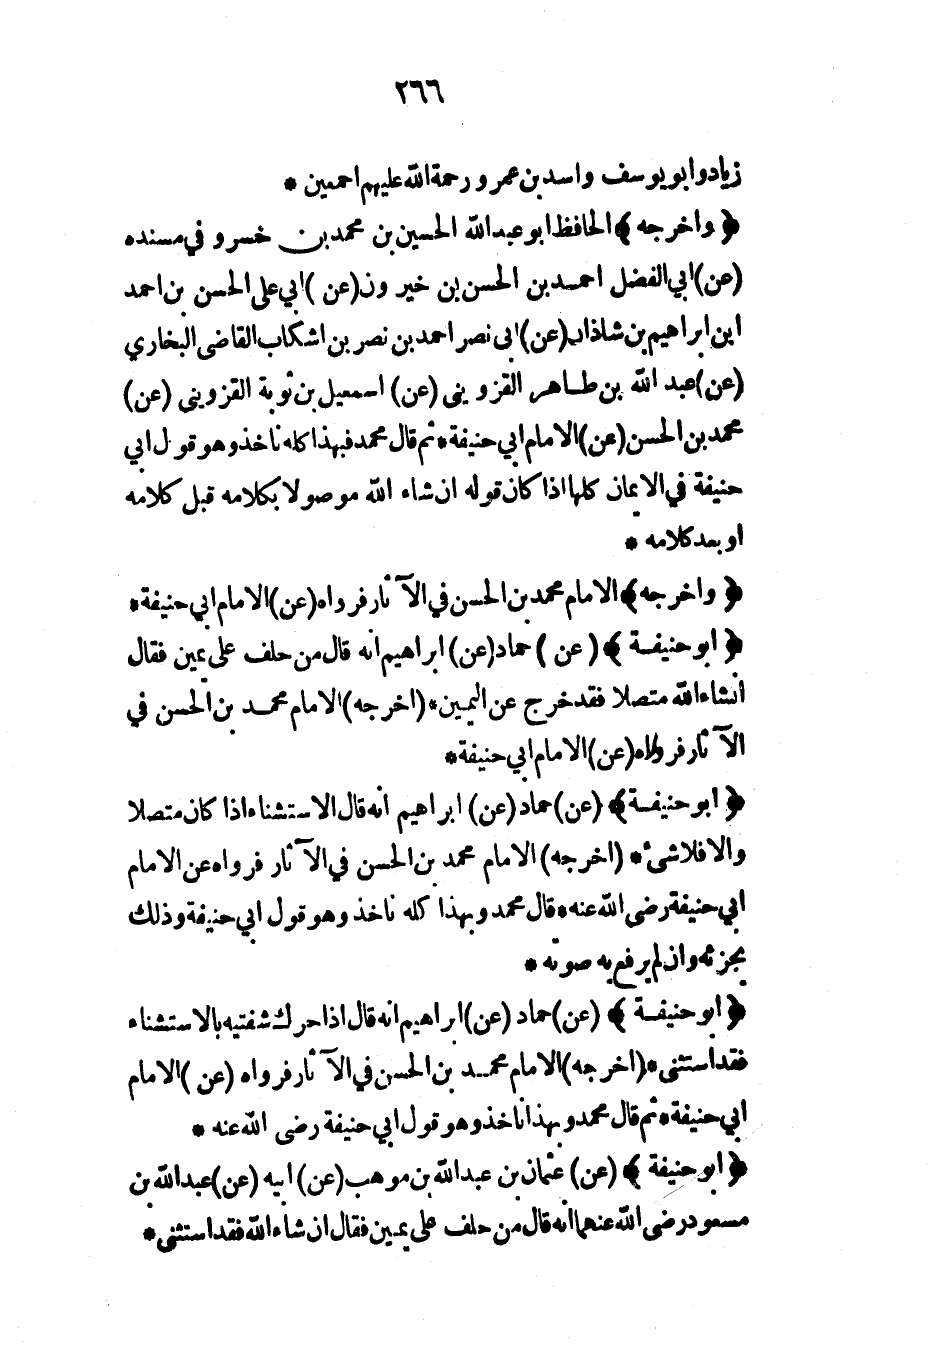 ٢٦٦
زياد وابو يوسف واسد بن عمرو رحمة الله عليهم اجمعين *
﴿ واخرجه ﴾ الحافظ ابو عبد الله الحسين بن محمد بن خسرو في مسنده
(عن) ابي الفضل احمد بن الحسن بن خيرون (عن) ابي على الحسن بن احمد
ابن ابراهيم بن شاذان (عن) ابى نصر احمد بن نصر بن اشكاب القاضى البخاري
(عن) عبد الله بن طاهر القزويني (عن) اسمعيل بن توبة القزويني (عن)
محمد بن الحسن (عن) الامام ابي حنيفة * ثم قال محمد فبهذا كله ناخذ وهو قول ابي
حنيفة في الايمان كلها اذا كان قوله ان شاء الله موصولا بكلامه قبل كلامه
او بعد كلامه *
﴿ واخرجه ﴾ الامام محمد بن الحسن في الآثار فرواه (عن) الامام ابي حنيفة *
﴿ ابو حنيفة ﴾ (عن) حماد (عن) ابراهيم انه قال من حلف على يمين فقال
انشاء الله متصلا فقد خرج عن اليمين * (اخرجه) الامام محمد بن الحسن في
الآثار فرواه (عن) الامام ابي حنيفة *
﴿ ابو حنيفة ﴾ (عن) حماد (عن) ابراهيم انه قال الاستثناء اذا كان متصلا
والا فلا شئ * (اخرجه) الامام محمد بن الحسن في الآثار فرواه عن الامام
ابي حنيفة رضى الله عنه * قال محمد وبهذا كله ناخذ وهو قول ابي حنيفة وذلك
يجزئه وان لم يرفع به صوته *
﴿ ابو حنيفة ﴾ (عن) حماد (عن) ابراهيم انه قال اذا حرك شفتيه بالاستثناء
فقد استثنى * (اخرجه) الامام محمد بن الحسن في الآثار فرواه (عن) الامام
ابي حنيفة * ثم قال محمد وبهذا ناخذ وهو قول ابي حنيفة رضى الله عنه *
﴿ ابو حنيفة ﴾ (عن) عثمان بن عبد الله بن موهب (عن) ابيه (عن) عبد الله بن
مسعود رضى الله عنهما انه قال من حلف على يمين فقال ان شاء الله فقد استثنى *